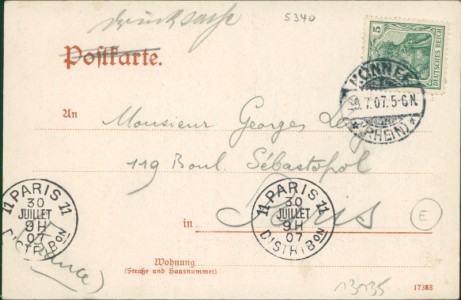 Drucksache
5340
Postkarte.
5
DEUTSCHES REICH
HONNEF
7.07.5-6N.
(RHEIN)
An
Monsieur Georges
119 Boul. Sébastopol
11 PARIS 11
30
JUILLET
9H
07
DISTRIBON
11 PARIS 11
30
JUILLET
9H
07
DISTRIBON
in Paris
E
(France)
Wohnung
(Straße und Hausnummer)
13135
17388